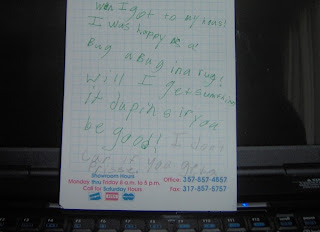 Wen I got to my hous!
I was happy as a
Bug a Bug in a rug!
Will I get sumthing
it dapins if you
be good! I don't
car if you
Showroom Hours
Monday thru Friday 8 a.m. to 6 p.m.
Call for Saturday Hours
Office: 357-657-4657
Fax: 317-857-5757